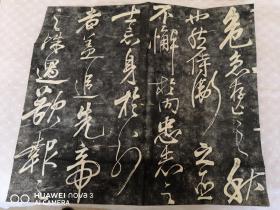 危急存亡之秋
也然侍衛之臣
不懈於內忠志之
士忘身於外
者蓋追先帝
之殊遇欲報
HUAWEI nova 3
AI CAMERA